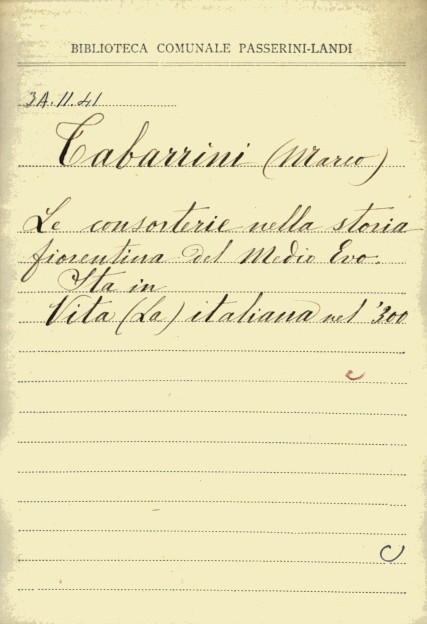 BIBLIOTECA COMUNALE PASSERINI-LANDI
3A.11.41
Tabarrini (Marco)
Le consorterie nella storia
fiorentina del Medio Evo.
Sta in
Vita (La) italiana nel '300